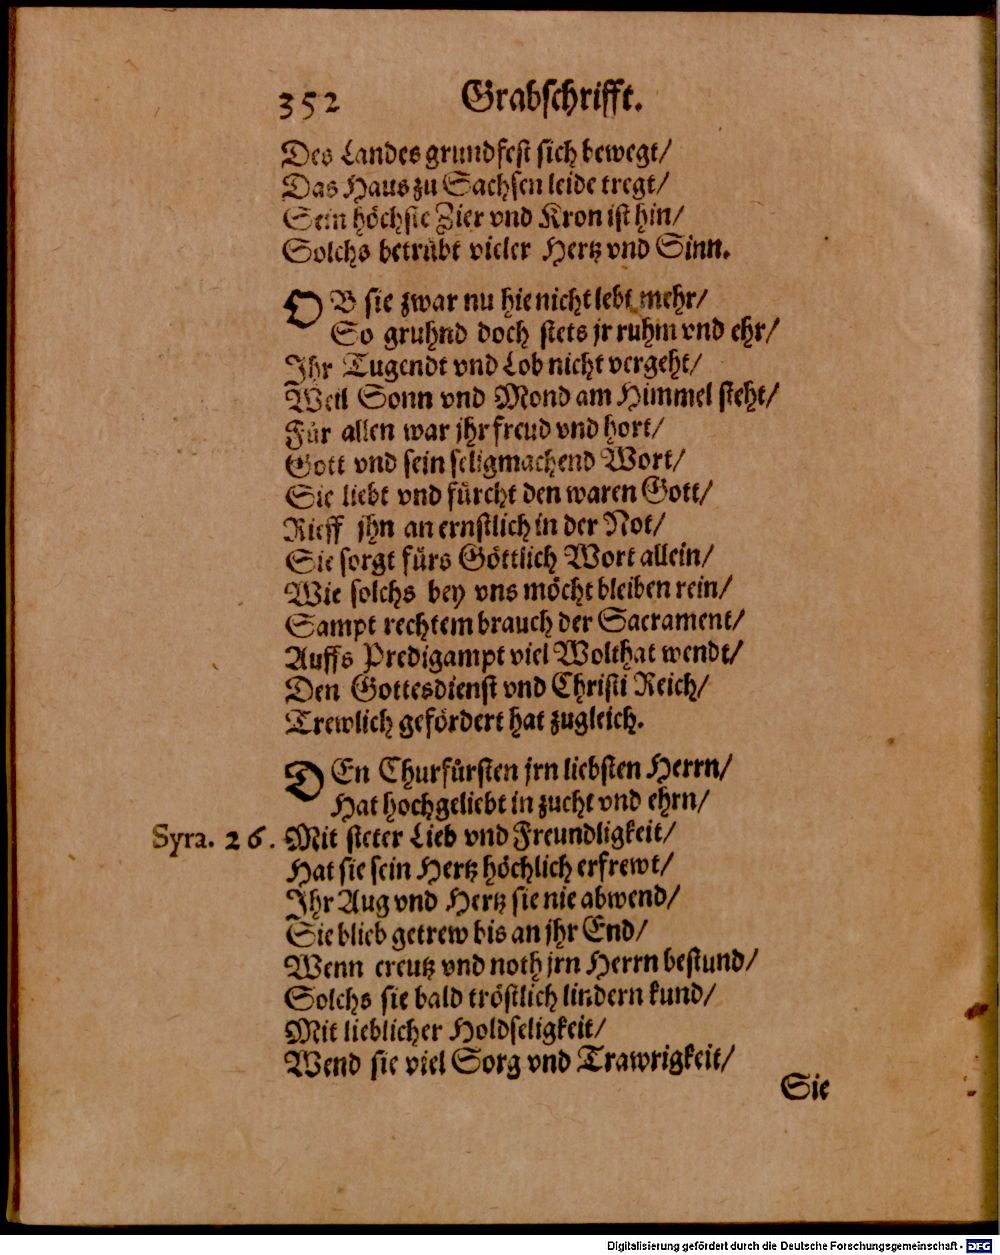 352 Grabschrifft.
Des Landes grundfest sich bewegt/
Das Haus zu Sachsen leide tregt/
Sein höchste Zier vnd Kron ist hin/
Solchs betrübt vieler Hertz vnd Sinn.
OB sie zwar nu hie nicht lebt mehr/
So gruhnd doch stets jr ruhm vnd ehr/
Ihr Tugendt vnd Lob nicht vergeht/
Weil Sonn vnd Mond am Himmel steht/
Für allen war jhr freud vnd hort/
Gott vnd sein seligmachend Wort/
Sie liebt vnd fürcht den waren Gott/
Rieff jhn an ernstlich in der Not/
Sie sorgt fürs Göttlich Wort allein/
Wie solchs bey vns möcht bleiben rein/
Sampt rechtem brauch der Sacrament/
Auffs Predigampt viel Wolthat wendt/
Den Gottesdienst vnd Christi Reich/
Trewlich gefördert hat zugleich.
DEn Churfürsten jrn liebsten Herrn/
Hat hochgeliebt in zucht vnd ehrn/
Syra. 26. Mit steter Lieb vnd Freundligkeit/
Hat sie sein Hertz höchlich erfrewt/
Ihr Aug vnd Hertz sie nie abwend/
Sie blieb getrew bis an jhr End/
Wenn creutz vnd noth jrn Herrn bestund/
Solchs sie bald tröstlich lindern kund/
Mit lieblicher Holdseligkeit/
Wend sie viel Sorg vnd Trawrigkeit/
Sie
Digitalisierung gefördert durch die Deutsche Forschungsgemeinschaft - DFG